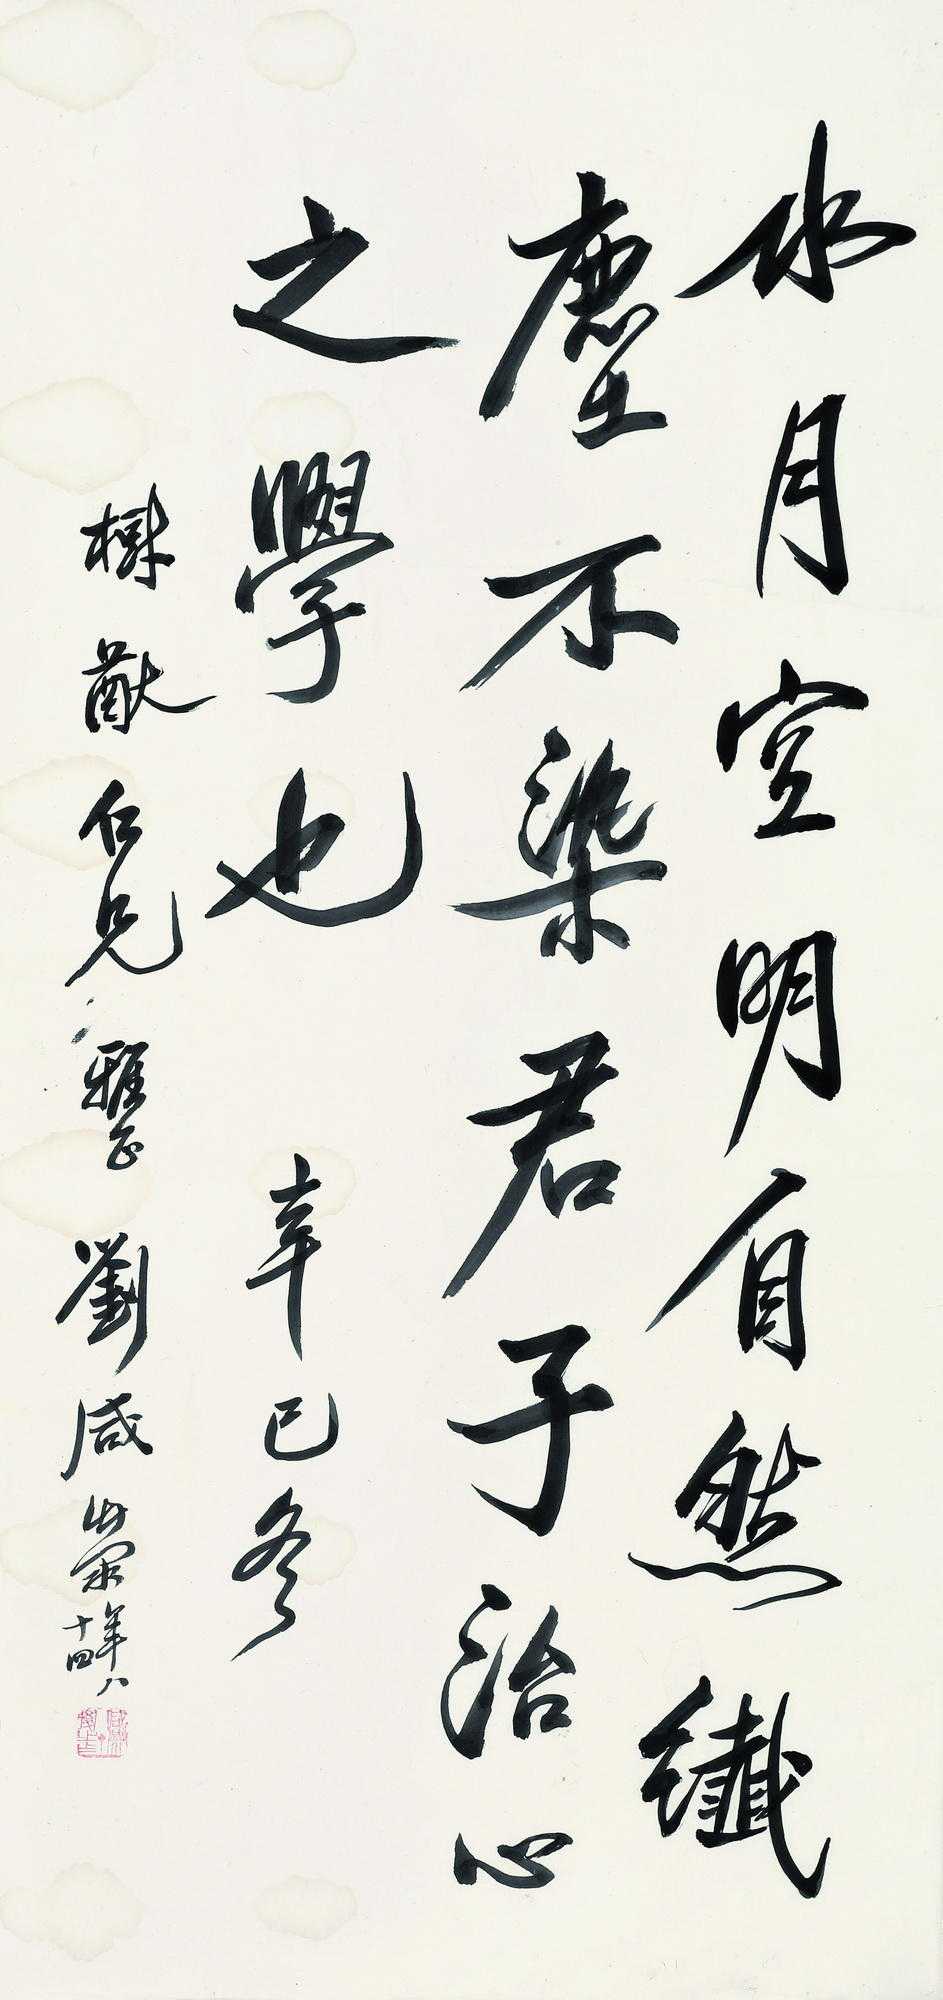 水月空明自然纖
塵不染君子治心
之學也 辛巳冬
樹猷仁兄雅正 劉咸榮年八十四